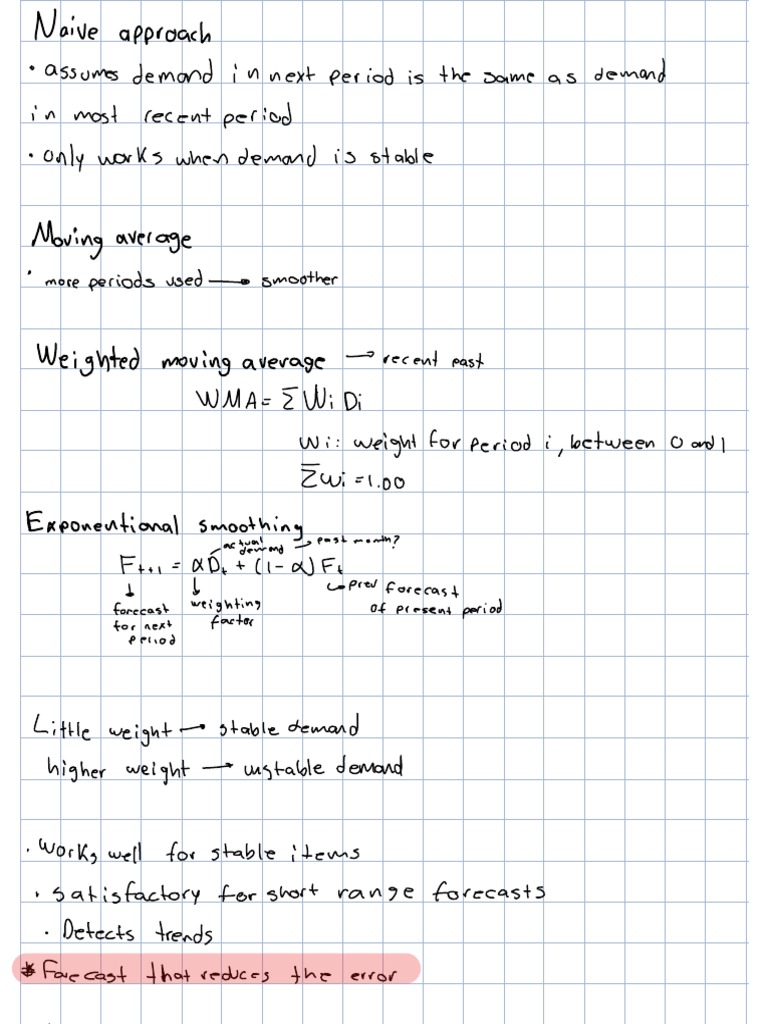 Naive approach
• assumes demand in next period is the same as demand
in most recent period
• only works when demand is stable
Moving average
• more periods used → smoother
Weighted moving average → recent past
WMA = Σ Wi Di
Wi: weight for period i, between 0 and 1
ΣWi = 1.00
Exponentional smoothing
actual demand → past month?
Ft+1 = αDt + (1-α) Ft
↓ forecast for next period
↓ weighting factor
→ prev forecast
of present period
Little weight → stable demand
higher weight → unstable demand
• Works well for stable items
• Satisfactory for short range forecasts
• Detects trends
* Forecast that reduces the error